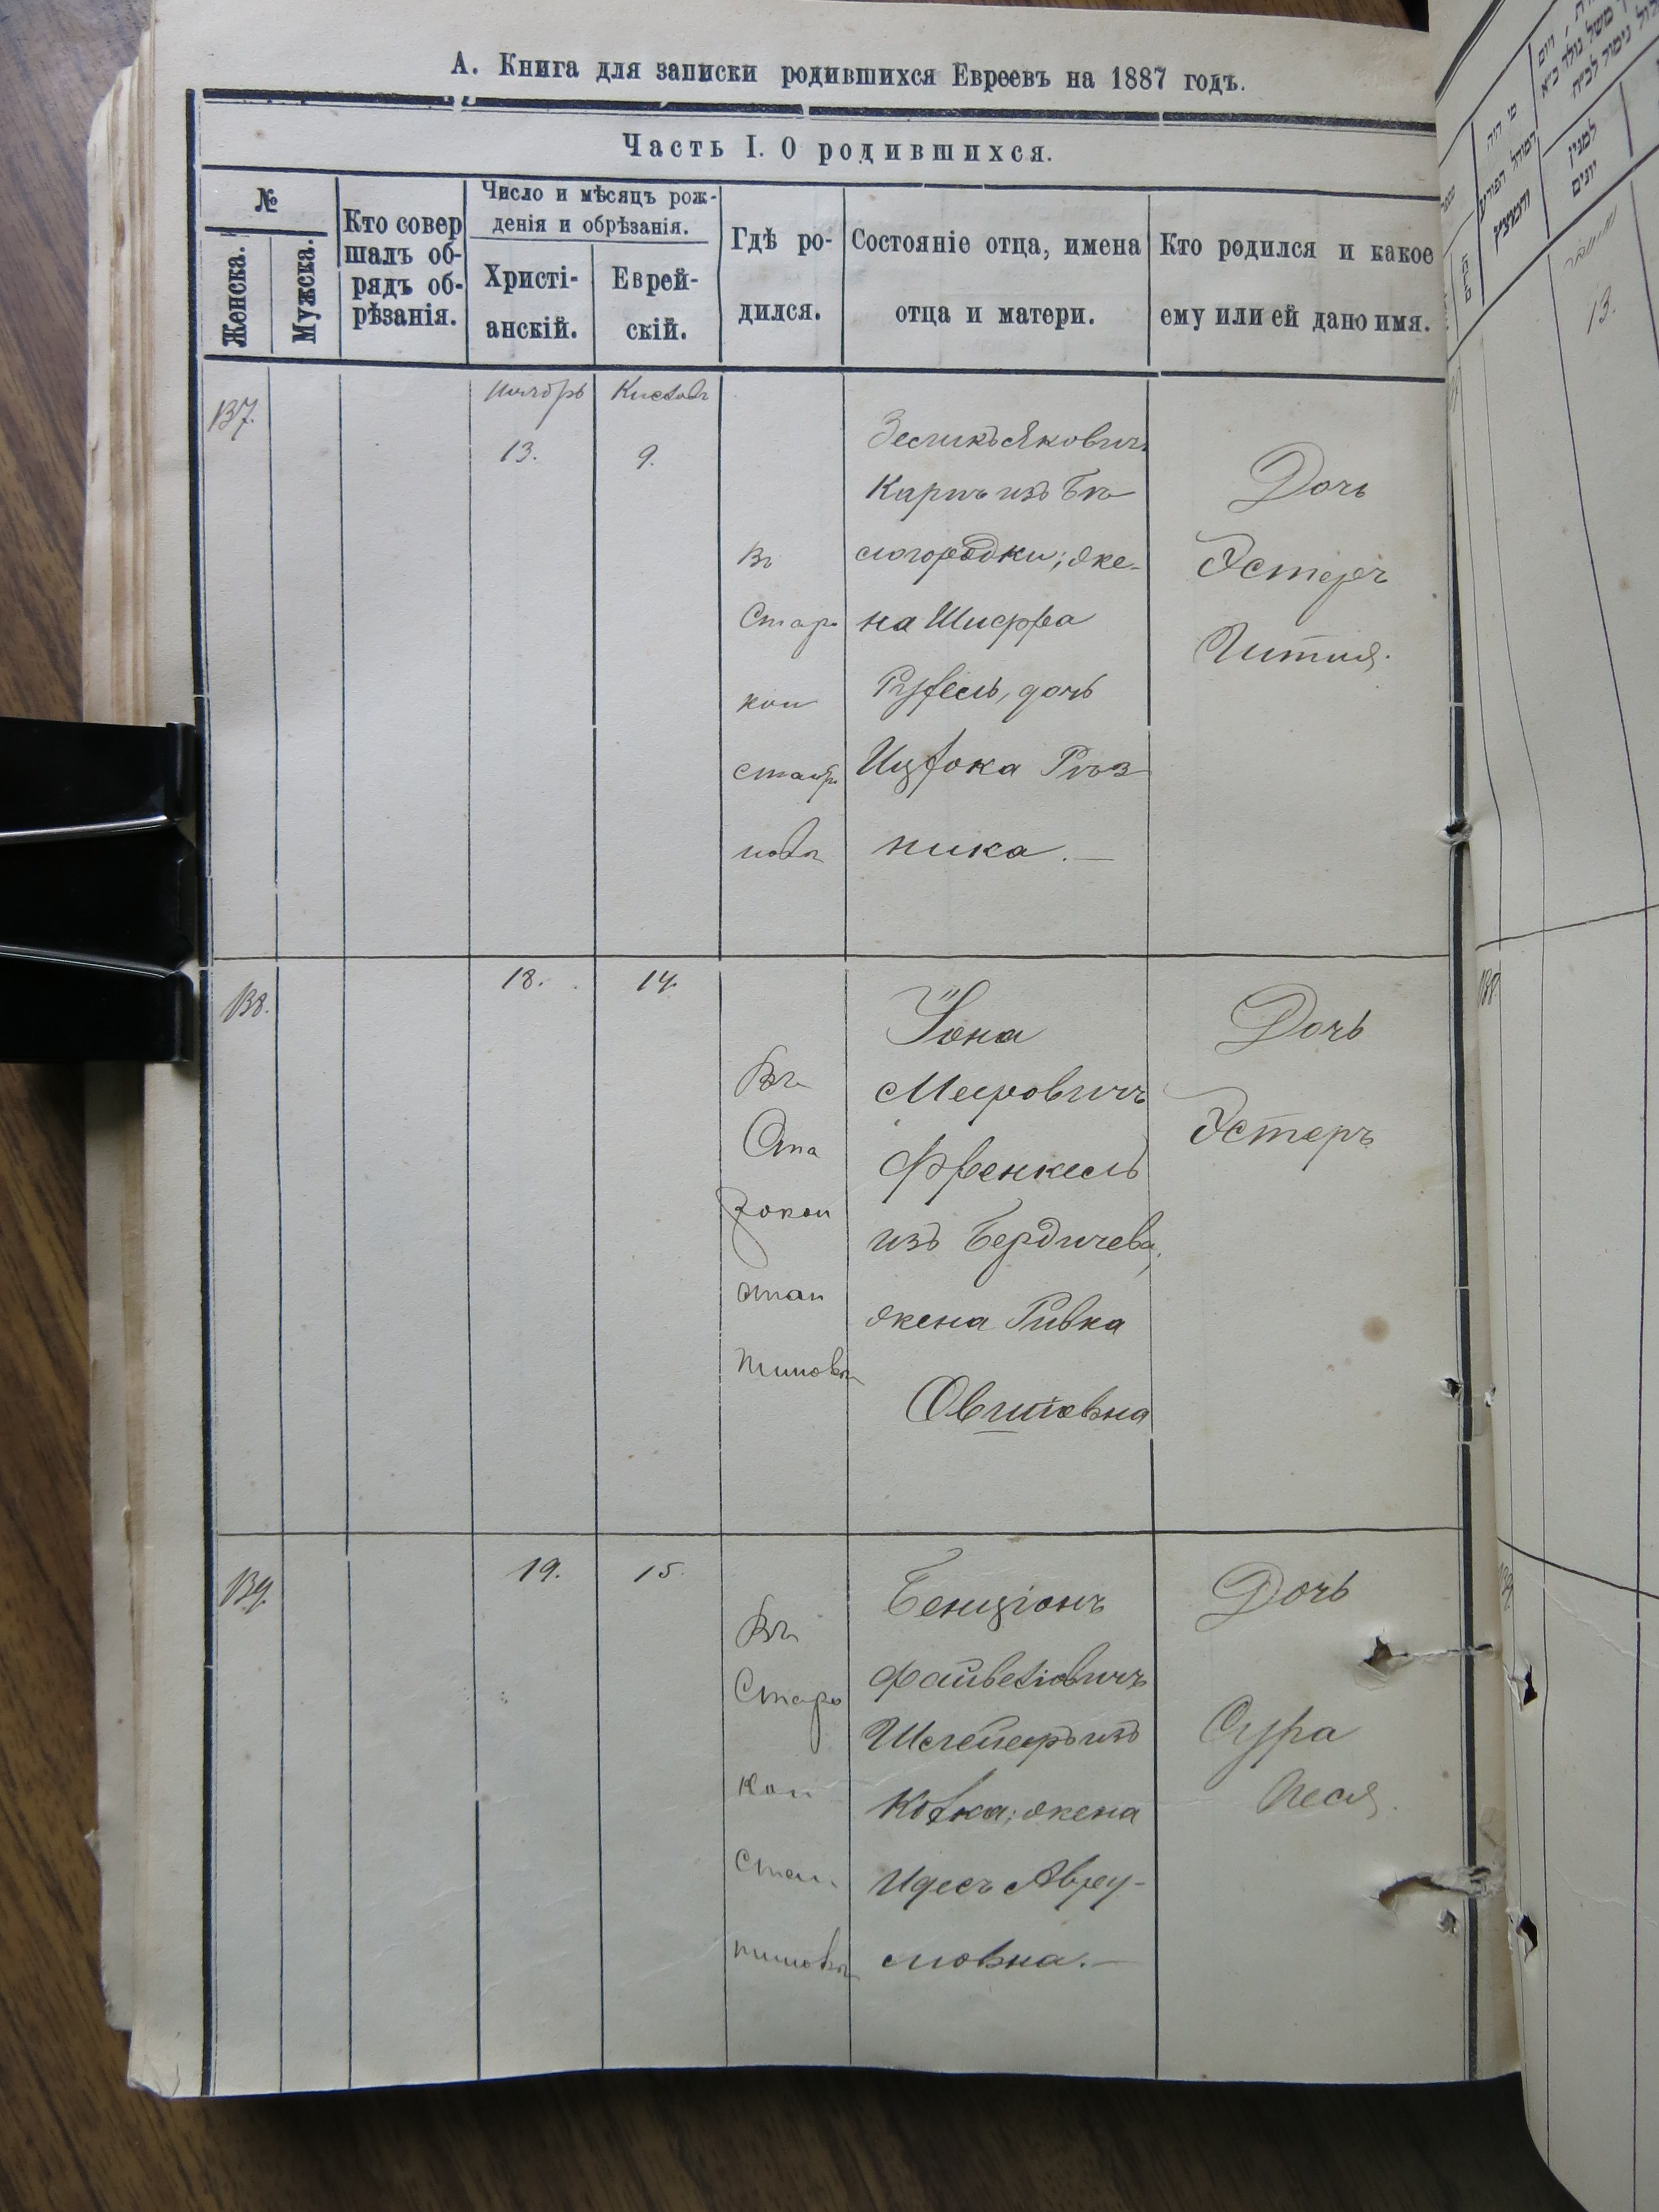 А. Книга для записки родившихся Евреевъ на 1887 годъ.
Часть I. О родившихся.
№
Женска.
Мужска.
Кто совер
шалъ об-
рядъ об-
рѣзанія.
Число и мѣсяцъ рож-
денія и обрѣзанія.
Христі-
анскій.
Еврей-
скій.
Гдѣ ро-
дился.
Состояніе отца, имена
отца и матери.
Кто родился и какое
ему или ей дано имя.
137.
Ноябрь
13.
Кислевъ
9.
Въ
Старо
кон
стан
Зеликъ Якович
из Бѣ
логородки; же-
на Шифра
дочь
Ицока Рѣз
ника. —
Дочь
Эстеръ
Гитля.
138.
18.
14.
Въ
Ста
рокон
стан
тиновѣ
Іона
Меировичъ
Френкель
изъ Бердичева,
жена Ривка
Овшіовна
Дочь
Эстеръ
139.
19.
15.
Въ
Старо
кон
стан
тиновѣ
Бенціонъ
Файвеліовичъ
изъ
жена
Идесъ Авру-
мовна. —
Дочь
Сура
Песя.
למנין
יונים
13.
138